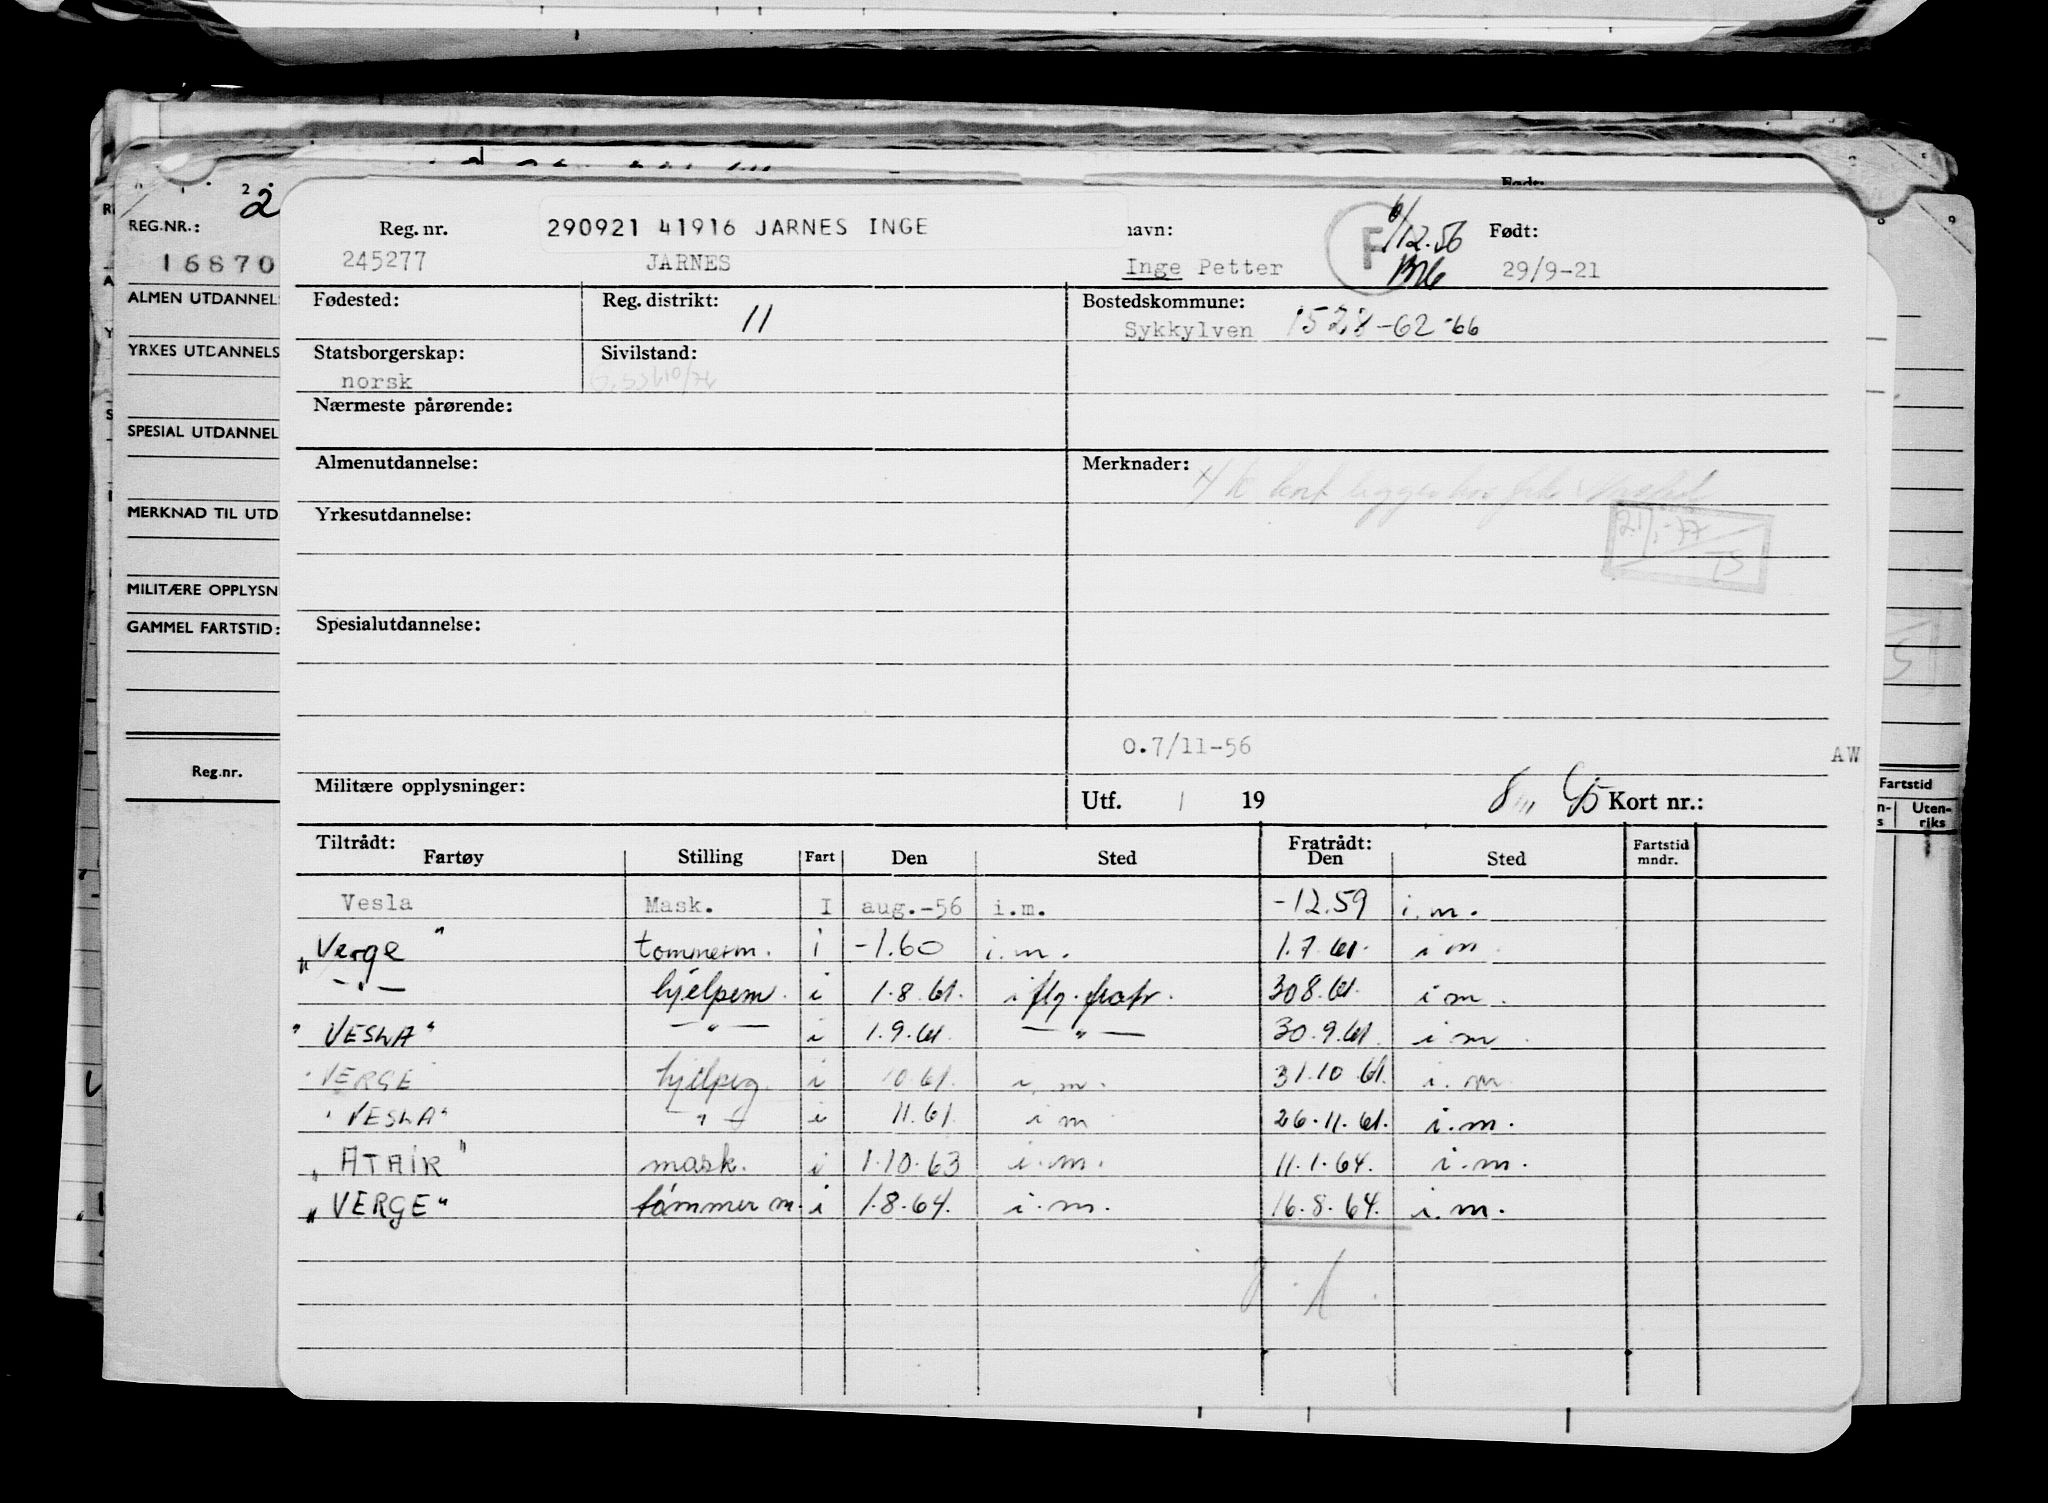 REG.NR.: 2
16870
ALMEN UTDANNEL
YRKES UTDANNELS
SPESIAL UTDANNEL
MERKNAD TIL UTD
MILITÆRE OPPLYSN
GAMMEL FARTSTID:
Reg.nr.
Reg. nr. 290921 41916 JARNES INGE navn: F 6/12.56 Født:
245277 JARNES Inge Petter 29/9-21
Fødested: Reg. distrikt: 11 Bostedskommune:
Sykkylven 1528-62-66
Statsborgerskap: Sivilstand:
norsk
Nærmeste pårørende:
Almenutdannelse: Merknader:
Yrkesutdannelse: 21/1-77
TS
Spesialutdannelse:
O.7/11-56
AW
Militære opplysninger: Utf. / 19 Kort nr.:
Fartstid
Uten-
riks
Tiltrådt: Fratrådt: Fartstid
Fartøy Stilling Fart Den Sted Den Sted mndr.
Vesla Mask. I aug.-56 i.m. -12.59 i.m.
„Verge" tømmerm. i -1.60 i.m. 1.7.61. i m
-"- hjelpem. i 1.8.61. i flg. fratr. 30 8.61. i m.
"VESLA" -"- i 1.9.61. -"- 30.9.61. i m
"VERGE hjelpeg. i 10.61. i.m. 31.10.61. i.m
"VESLA" -"- i 11.61. i m 26.11.61. i.m.
„ATAIR" mask. i 1.10.63 i.m. 11.1.64. i.m.
„VERGE" tømmer m. i 1.8.64. i.m. 16.8.64. i.m.